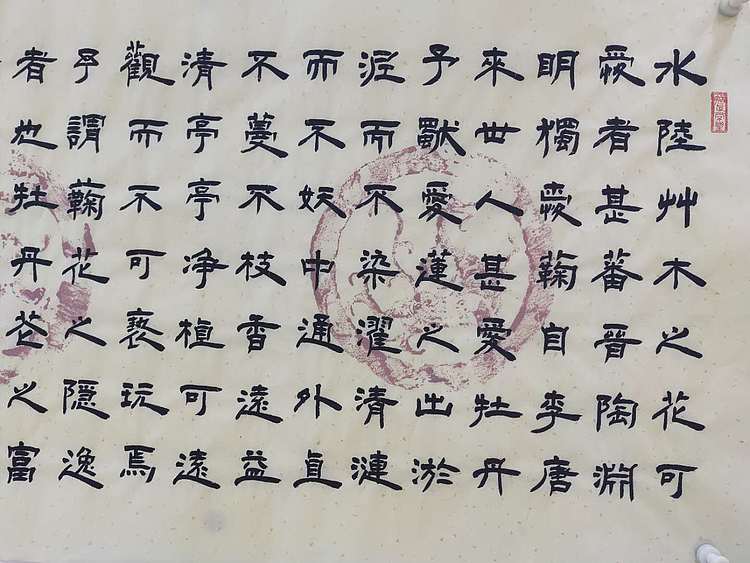 水陸艸木之花可
愛者甚蕃晉陶淵
明獨愛蘜自李唐
來世人甚愛牡丹
予獸愛蓮之出淤
泥而不染濯清漣
而不妖中通外直
不蔓不枝香遠益
清亭亭净植可遠
觀而不可褻玩焉
予謂蘜花之隱逸
者也牡丹花之富